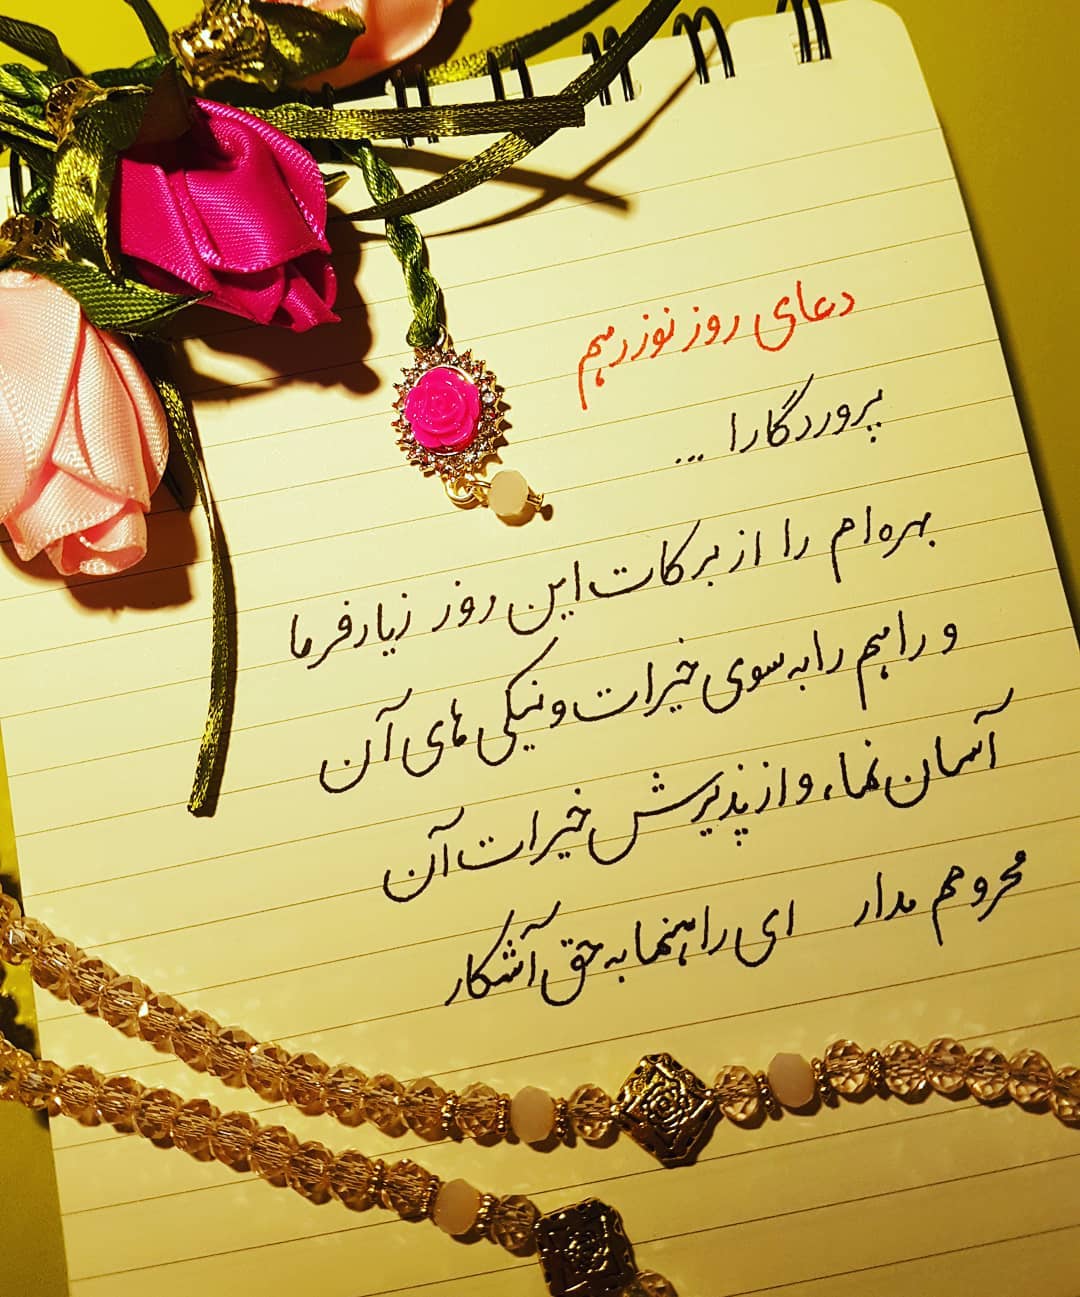 دعای روز نوزدهم
پروردگارا ...
بهره‌ام را از برکات این روز زیاد فرما
و راهم را به سوی خیرات و نیکی های آن
آسان نما، و از پذیرش خیرات آن
محرومم مدار ای راهنما به حق آشکار